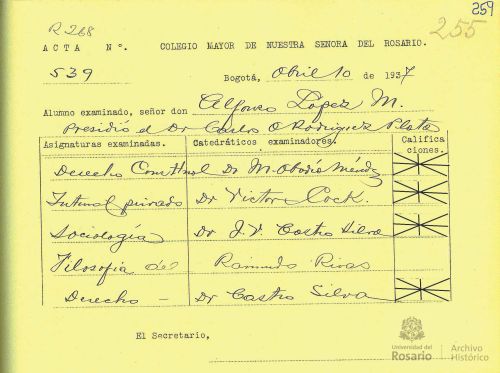 259
R 268
255
ACTA Nº. COLEGIO MAYOR DE NUESTRA SEÑORA DEL ROSARIO.
539
Bogotá, Abril 10 de 1937
Alumno examinado, señor don Alfonso López M.
Presidió el Dr Carlos O Rodriguez Plata
Asignaturas examinadas. Catedráticos examinadores. Califica
ciones.
Derecho Constnal Dr M. Abadía Méndez
Internal privado Dr Victor Cock.
Sociología Dr J.V. Castro Silva
Filosofia del Raimundo Rivas
Derecho — Dr Castro Silva
El Secretario,
Universidad del Rosario
Archivo Histórico